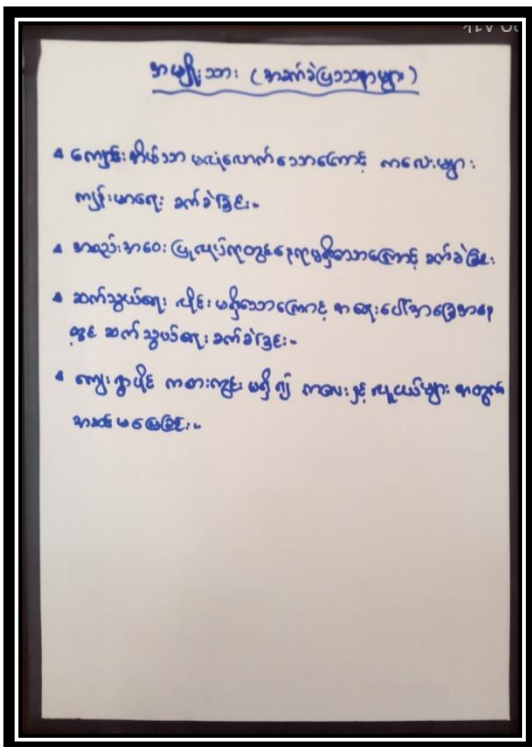 အမျိုးသား (အခက်ခဲပြဿနာများ)
ကျောင်းအိမ်သာ မလုံလောက်သောကြောင့် ကလေးများ
ကျန်းမာရေး ခက်ခဲခြင်း။
အစည်းအဝေး ပြုလုပ်ရာတွင်နေရာမရှိသောကြောင့် ခက်ခဲခြင်း
ဆက်သွယ်ရေး လိုင်းမရှိသောကြောင့် အရေးပေါ်အခြေအနေ
တွင် ဆက်သွယ်ရေး ခက်ခဲခြင်း။
ကျေးရွာပိုင် ကစားကွင်း မရှိ၍ ကလေးနှင့် လူငယ်များ အတွက်
အဆင်မပြေခြင်း။